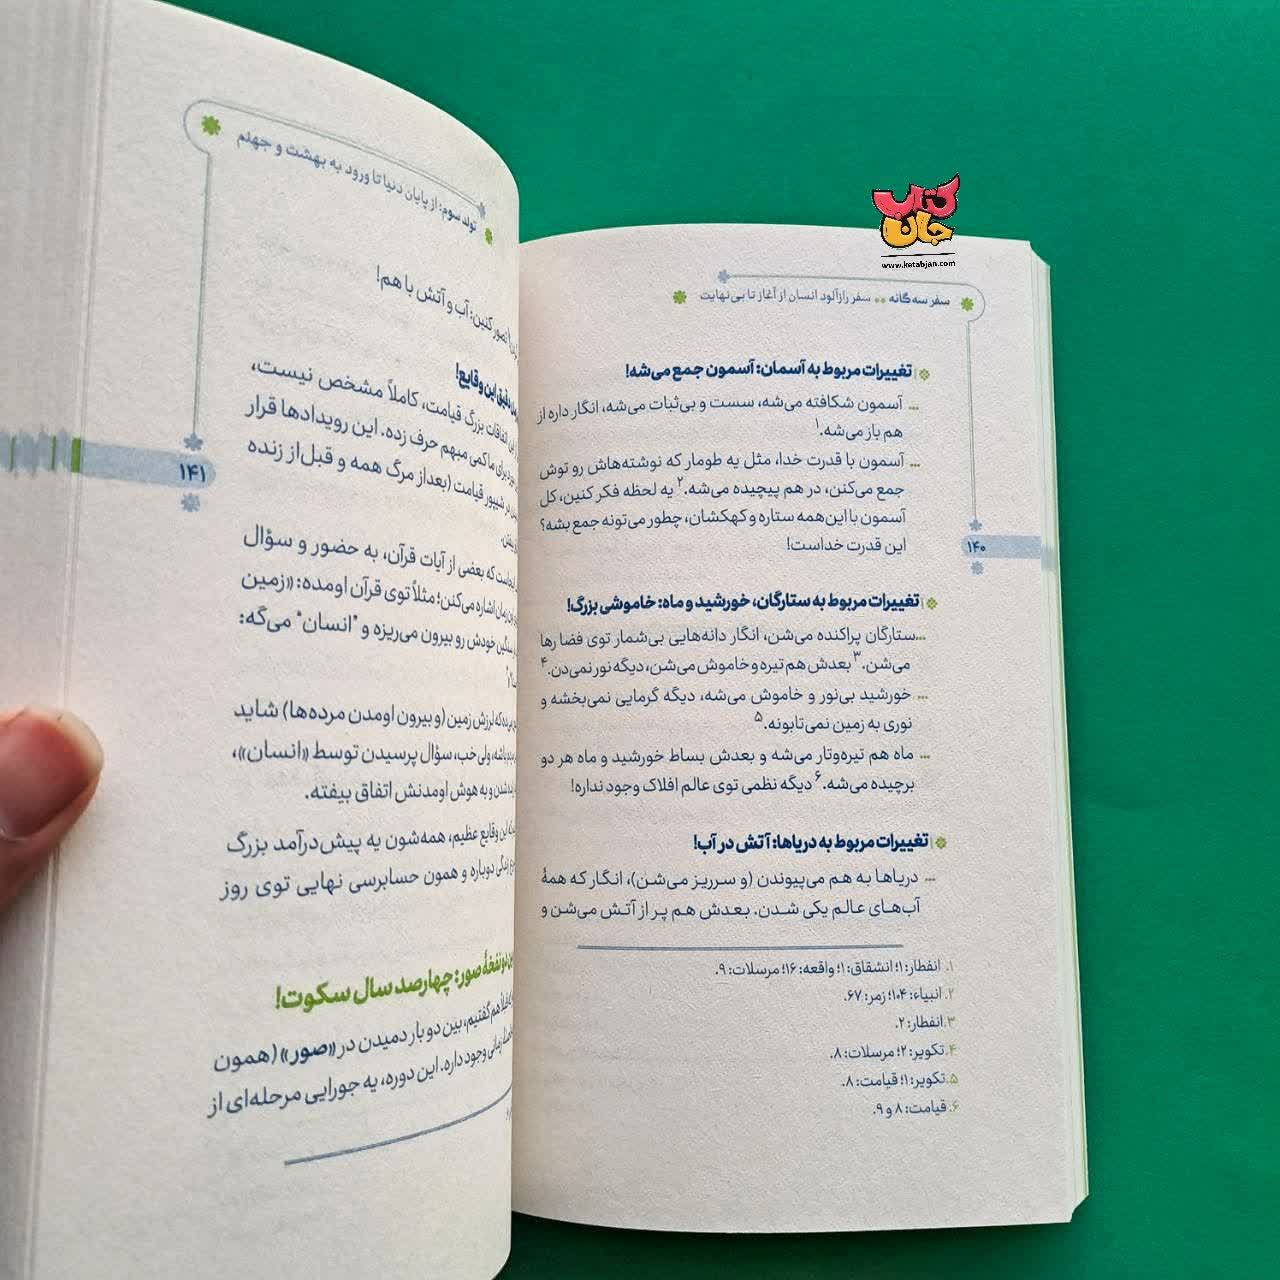 کتاب
جان
www.ketabjan.com
سفر سه گانه •• سفر رازآلود انسان از آغاز تا بی‌نهایت
تغییرات مربوط به آسمان: آسمون جمع می‌شه!
... آسمون شکافته می‌شه، سست و بی‌ثبات می‌شه، انگار داره از
هم باز می‌شه.۱
... آسمون با قدرت خدا، مثل یه طومار که نوشته‌هاش رو توش
جمع می‌کنن، در هم پیچیده می‌شه.۲ یه لحظه فکر کنین، کل
آسمون با این همه ستاره و کهکشان، چطور می‌تونه جمع بشه؟
این قدرت خداست!
۱۴۰
تغییرات مربوط به ستارگان، خورشید و ماه: خاموشی بزرگ!
... ستارگان پراکنده می‌شن، انگار دانه‌هایی بی‌شمار توی فضا رها
می‌شن.۳ بعدش هم تیره و خاموش می‌شن، دیگه نور نمی‌دن.۴
... خورشید بی‌نور و خاموش می‌شه، دیگه گرمایی نمی‌بخشه و
نوری به زمین نمی‌تابونه.۵
... ماه هم تیره‌وتار می‌شه و بعدش بساط خورشید و ماه هر دو
برچیده می‌شه.۶ دیگه نظمی توی عالم افلاک وجود نداره!
تغییرات مربوط به دریاها: آتش در آب!
... دریاها به هم می‌پیوندن (و سرریز می‌شن)، انگار که همهٔ
آب‌های عالم یکی شدن. بعدش هم پر از آتش می‌شن و
۱. انفطار: ۱؛ انشقاق: ۱؛ واقعه: ۱۶؛ مرسلات: ۹.
۲. انبیاء: ۱۰۴؛ زمر: ۶۷.
۳. انفطار: ۲.
۴. تکویر: ۲؛ مرسلات: ۸.
۵. تکویر: ۱؛ قیامت: ۸.
۶. قیامت: ۸ و ۹.
تولد سوم: از پایان دنیا تا ورود به بهشت و جهنم
تصور کنین: آب و آتش با هم!
دقیق این وقایع!
این اتفاقات بزرگ قیامت، کاملاً مشخص نیست،
برای ما کمی مبهم حرف زده. این رویدادها قرار
در شیپور قیامت (بعد از مرگ همه و قبل از زنده
۱۴۱
است که بعضی از آیات قرآن، به حضور و سؤال
زمان اشاره می‌کنن؛ مثلاً توی قرآن اومده: «زمین
سنگین خودش رو بیرون می‌ریزه و "انسان" می‌گه:
که لرزش زمین (و بیرون اومدن مرده‌ها) شاید
باشه، ولی خب، سؤال پرسیدن توسط «انسان»،
شدن و به هوش اومدنش اتفاق بیفته.
این وقایع عظیم، همه‌شون یه پیش‌درآمد بزرگ
زندگی دوباره و همون حسابرسی نهایی توی روز
دو نفخهٔ صور: چهارصد سال سکوت!
هم گفتیم، بین دو بار دمیدن در «صور» (همون
زمانی وجود داره. این دوره، یه جورایی مرحله‌ای از